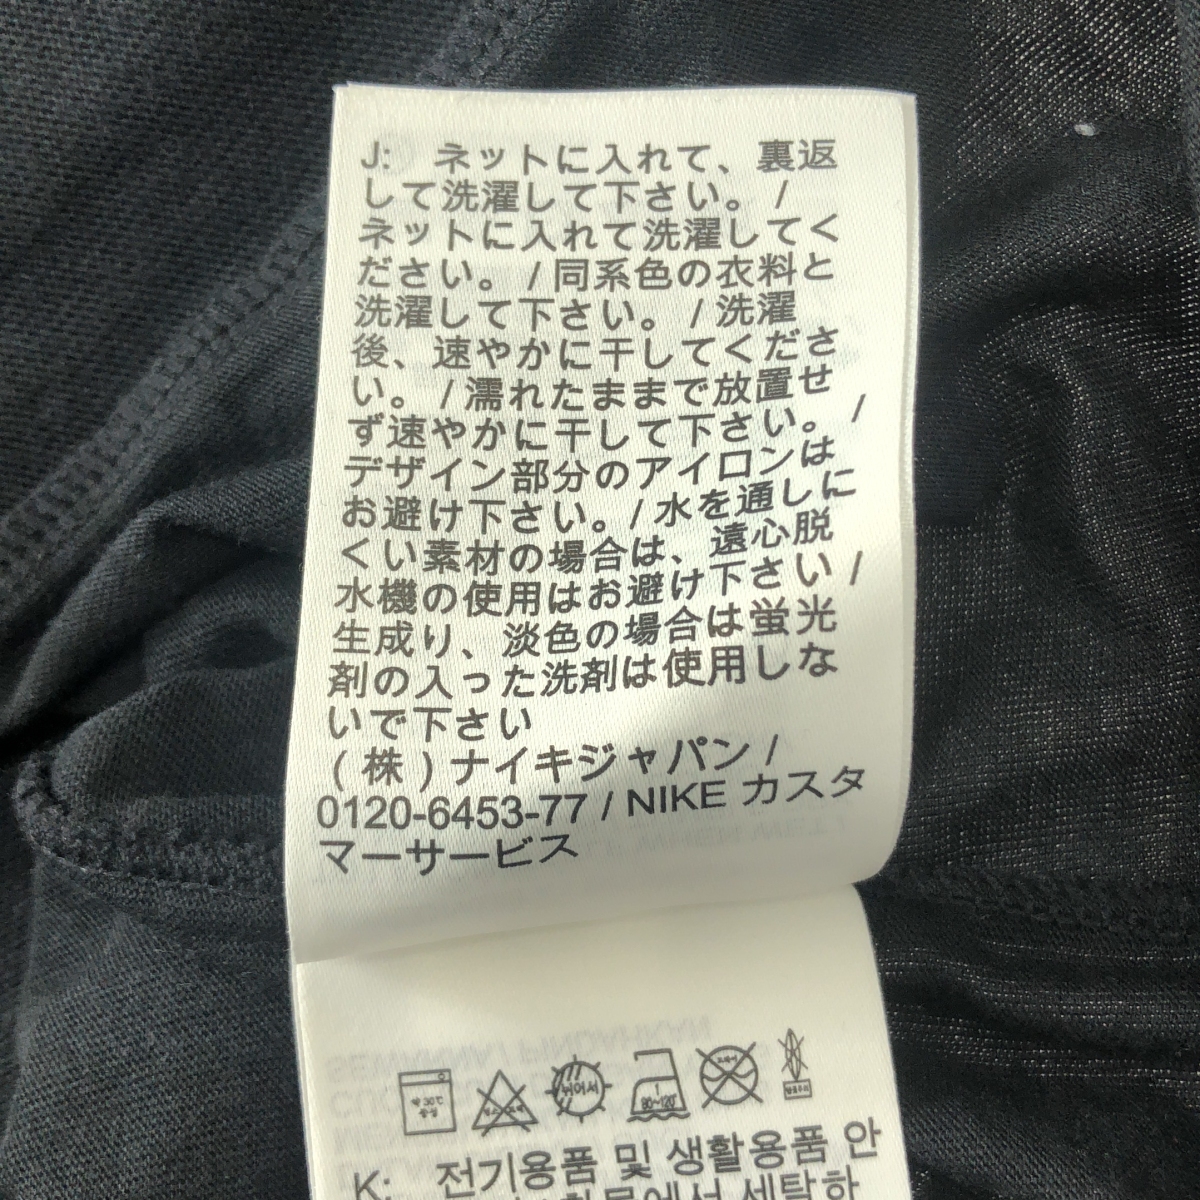 J: ネットに入れて、裏返
して洗濯して下さい。 /
ネットに入れて洗濯してく
ださい。 / 同系色の衣料と
洗濯して下さい。 / 洗濯
後、速やかに干してくださ
い。 / 濡れたままで放置せ
ず速やかに干して下さい。 /
デザイン部分のアイロンは
お避け下さい。 / 水を通しに
くい素材の場合は、遠心脱
水機の使用はお避け下さい /
生成り、淡色の場合は蛍光
剤の入った洗剤は使用しな
いで下さい
(株)ナイキジャパン /
0120-6453-77 / NIKE カスタ
マーサービス
약 30℃
중성
80~120℃
K: 전기용품 및 생활용품 안
에서 세탁하